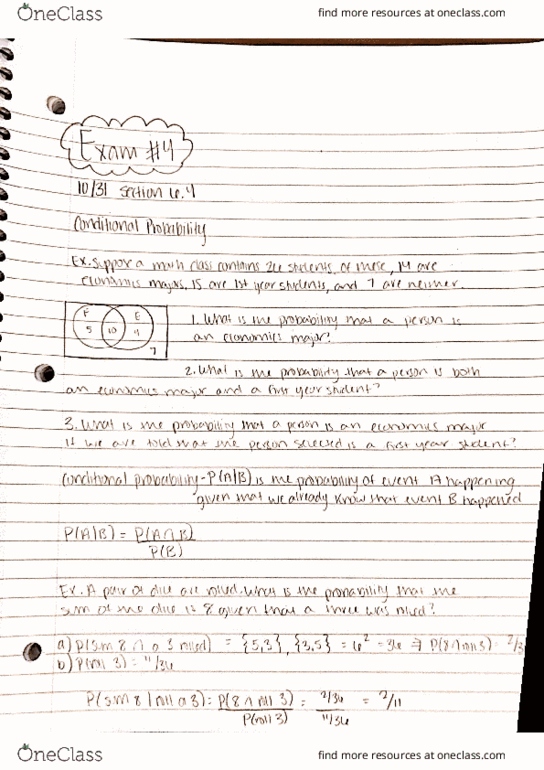 OneClass
find more resources at oneclass.com
Exam #4
10/31 Section 6.4
Conditional Probability
Ex. Suppose a math class contains 26 students, of these, 14 are
economics majors, 15 are 1st year students, and 7 are neither.
F E
5 10 4
7
1. What is the probability that a person is
an economics major?
2. What is the probability that a person is both
an economics major and a first year student?
3. What is the probability that a person is an economics major
if we are told that the person selected is a first year student?
Conditional probability - P(A|B) is the probability of event A happening
given that we already know that event B happened
P(A|B) = P(A∩B)
P(B)
Ex. A pair of dice are rolled. What is the probability that the
sum of the dice is 8 given that a three was rolled?
a) P(sum 8 ∩ a 3 rolled) = {5,3}, {3,5} = 6² = 36 ⇒ P(8∩roll 3) = 2/3
b) P(roll 3) = 11/36
P(sum 8 | roll a 3) = P(8 ∩ roll 3) = 2/36 = 2/11
P(roll 3) 11/36
OneClass
find more resources at oneclass.com